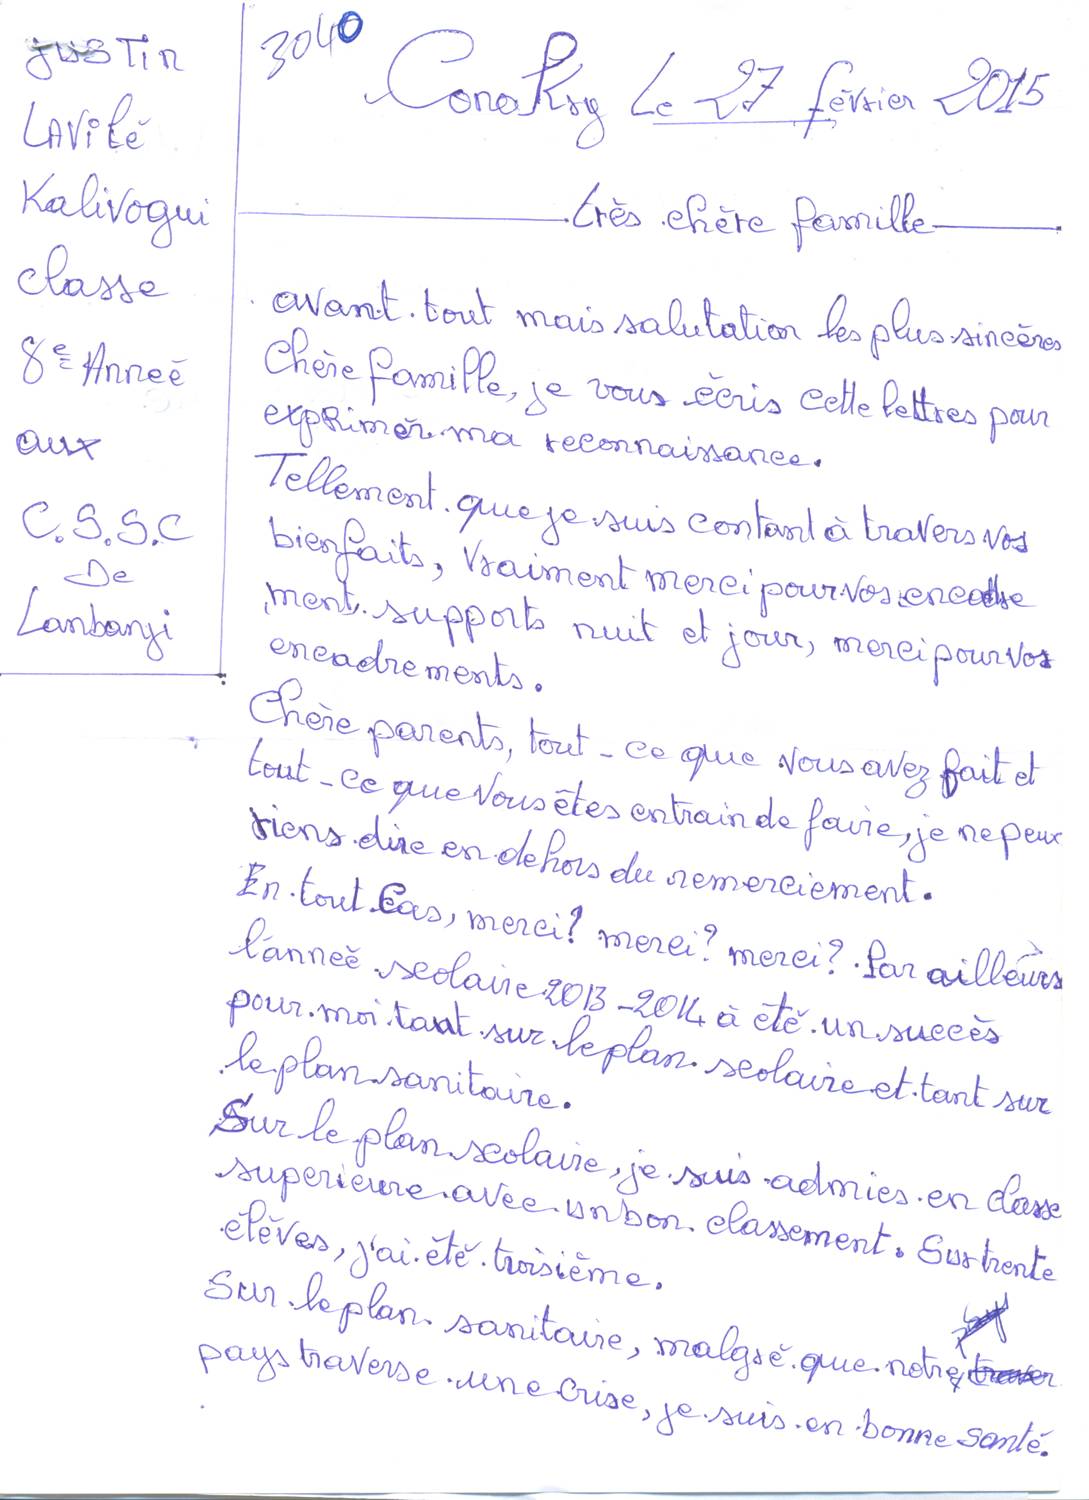 JUSTIN
LAVILÉ
Kalivogui
classe
8e Anneé
aux
C.S.S.C
De
Lanbanyi
3040
Conakry Le 27 février 2015
très chère famille
avant tout mais salutation les plus sincères
Chère famille, je vous écris cette lettres pour
exprimér ma reconnaissance.
Tellement que je suis contant à travers vos
bienfaits, vraiment merci pour vos encadre
ment supports nuit et jour, merci pour vos
encadrements.
Chère parents, tout-ce que vous avez fait et
tout-ce que vous êtes entrain de faire, je ne peux
riens dire en dehors du remerciement.
En tout Cas, merci! merci? merci? Par ailleurs
l'anneé scolaire 2013-2014 à été un succès
pour moi tant sur le plan scolaire et tant sur
le plan sanitaire.
Sur le plan scolaire, je suis admies en classe
superieure avec un bon classement. Sur trente
élèves, j'ai été troisième.
Sur le plan sanitaire, malgré que notre
pays traverse une crise, je suis en bonne santé.